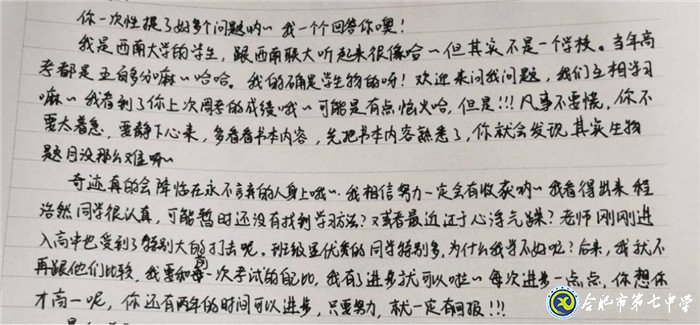 你一次性提了好多个问题哟~ 我一个个回答你噢！
我是西南大学的学生，跟西南联大听起来很像哈~但其实不是一个学校。当年高
考都是五百多分嘛~哈哈。我的确是学生物的呀！欢迎来问我问题，我们互相学习
嘛~我看到了你上次周考的成绩哦~可能是有点恼火哈，但是！！！凡事不要慌，你不
要太着急，要静下心来，多看看书本内容，先把书本内容熟悉了，你就会发现其实生物
题目没那么难嘛~
奇迹真的会降临在永不言弃的人身上哦~我相信努力一定会有收获哟~我看得出来程
浩然同学很认真，可能暂时还没有找到学习方法？又或者最近过于心浮气躁？老师刚刚进
入高中也受到了特别大的打击呢。班级里优秀的同学特别多，为什么我学不好呢？后来，我就不
再跟他们比较，我要和每一次考试的自己比，我有进步就可以啦~每次进步一点点，你想你
才高一呢，你还有两年的时间可以进步，只要努力，就一定有回报！！！
合肥市第七中学